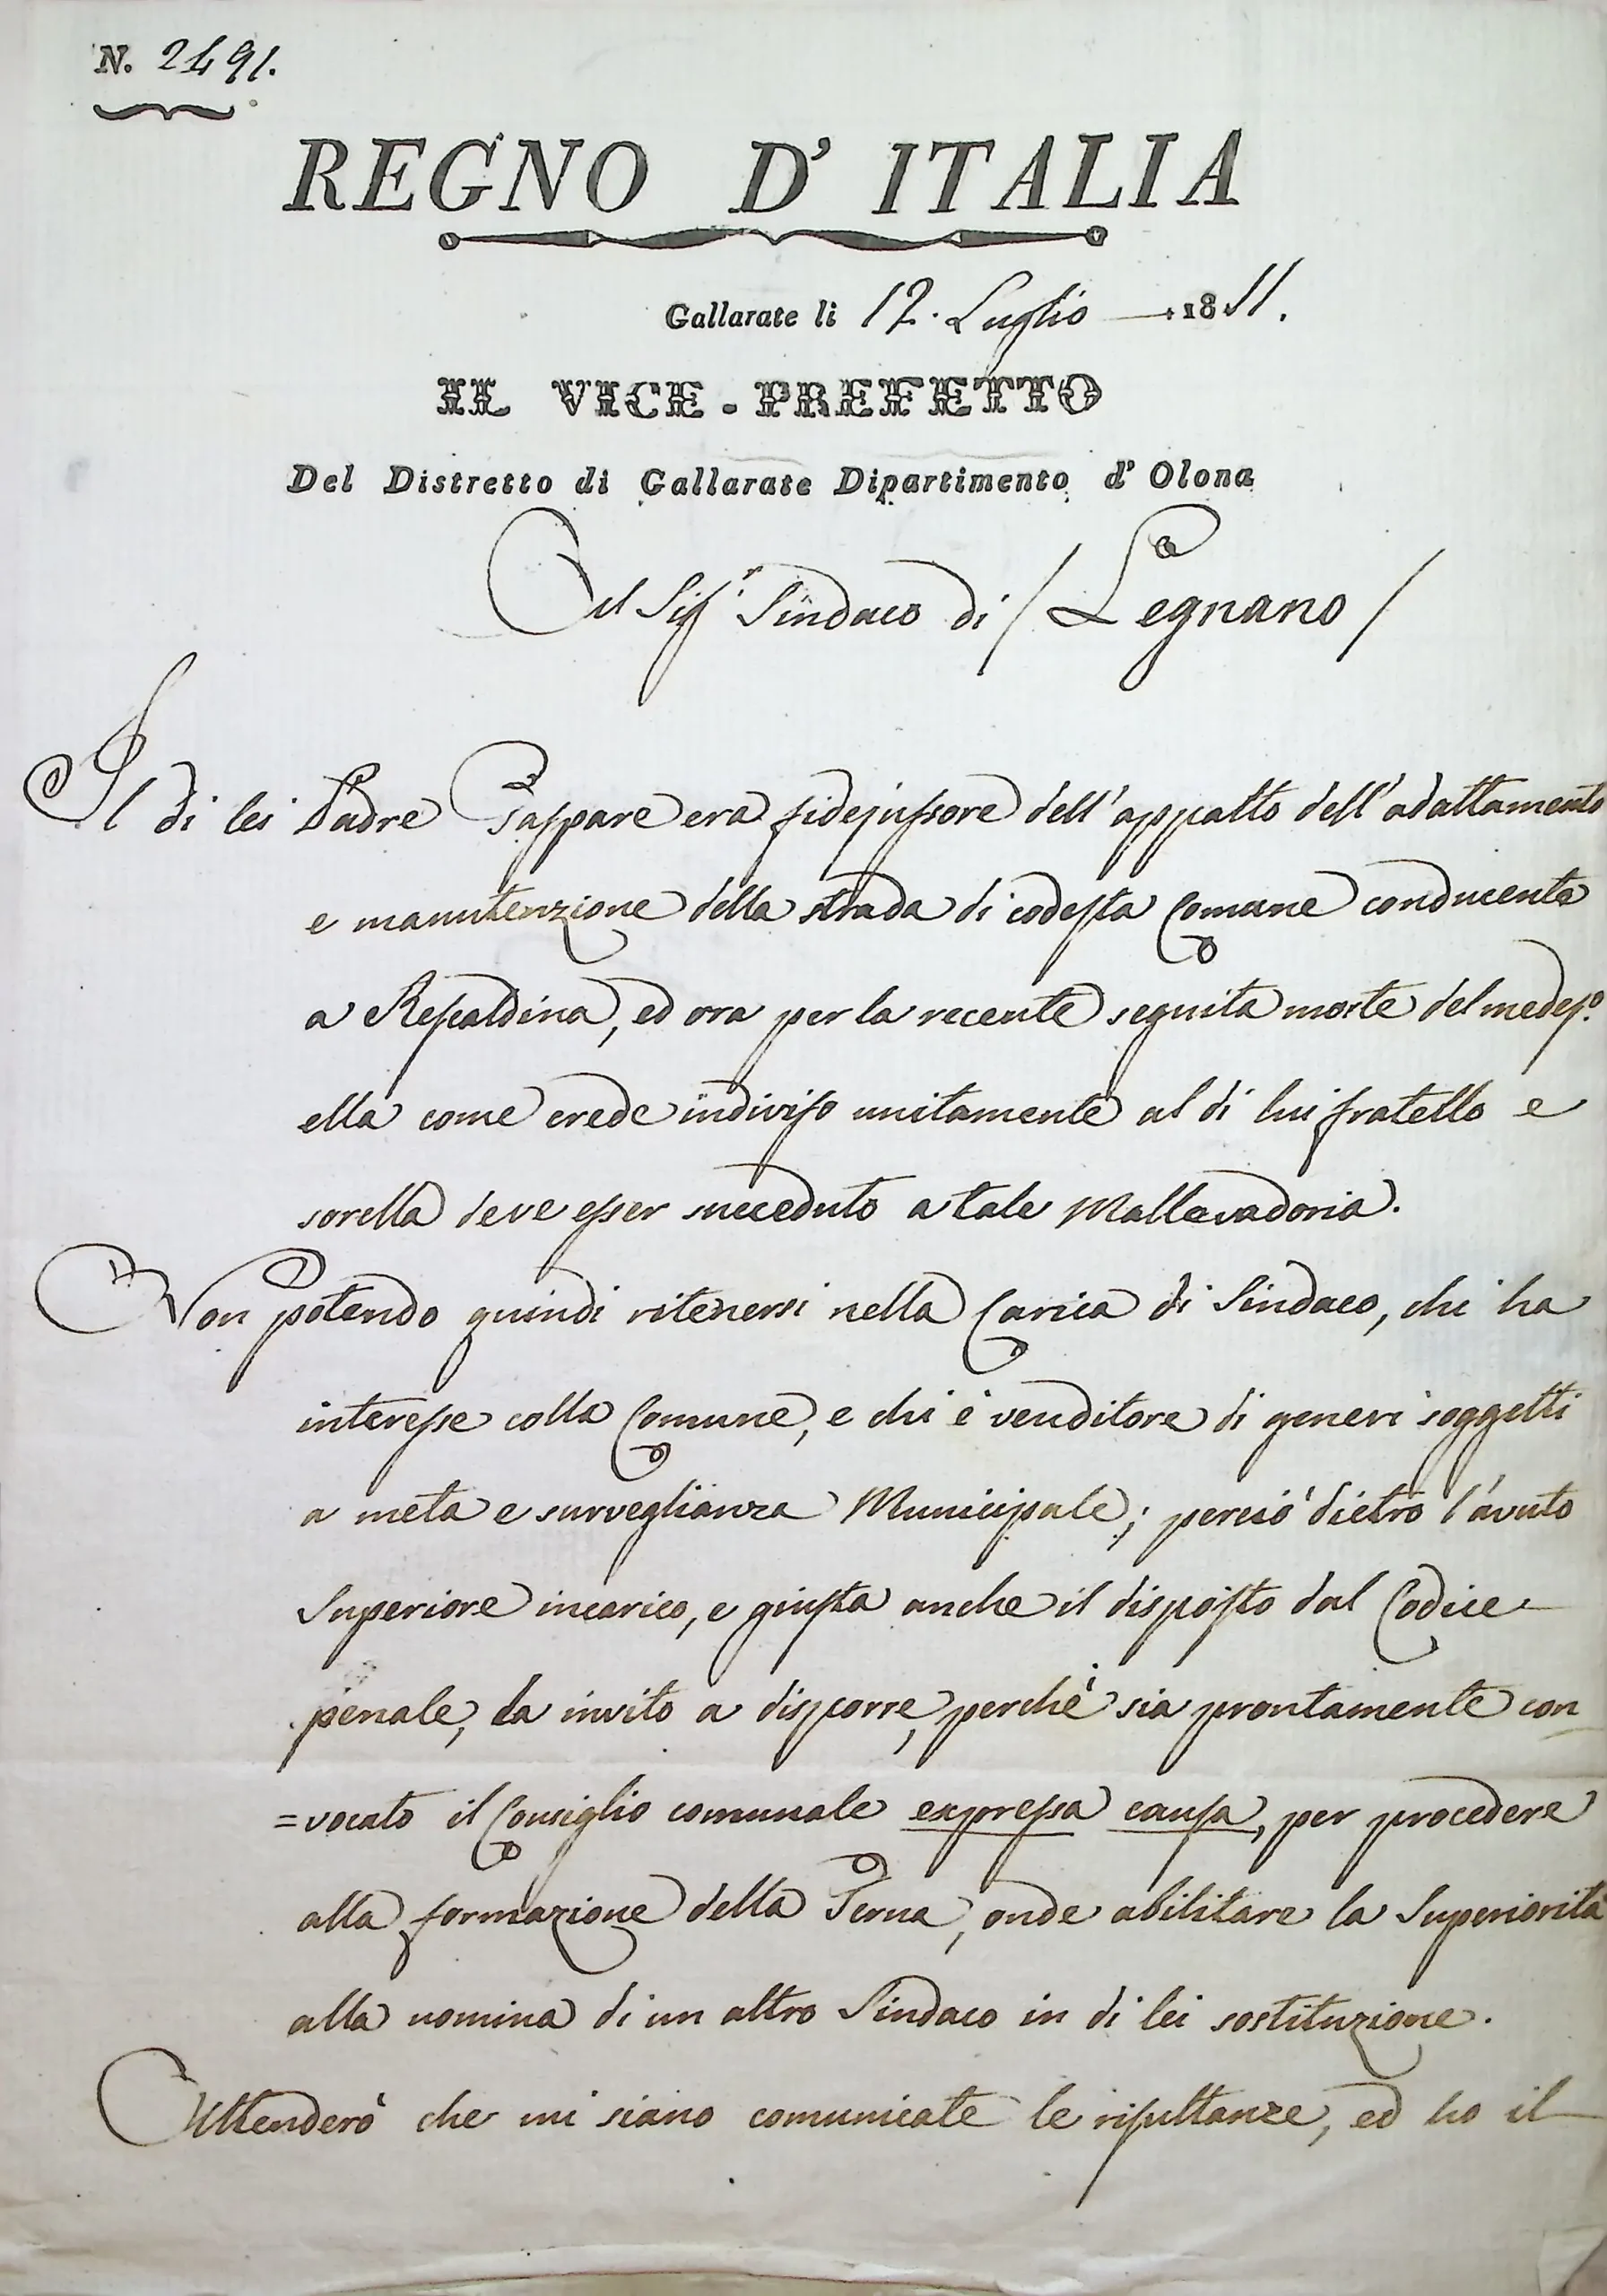 N. 2491.
REGNO D' ITALIA
Gallarate li 12. Luglio 1811.
IL VICE-PREFETTO
Del Distretto di Gallarate Dipartimento d' Olona
Al Sig.r Sindaco di / Legnano /
Il di lei Padre Gaspare era fidejussore dell'appalto dell'adattamento
e manutenzione della strada di codesta Comune conducente
a Rescaldina, ed ora per la recente seguita morte del medes.o
ella come erede indiviso unitamente al di lui fratello e
sorella deve esser succeduto a tale Mallevadoria.
Non potendo quindi ritenersi nella Carica di Sindaco, chi ha
interesse colla Comune, e chi è venditore di generi soggetti
a meta e surveglianza Municipale; perciò dietro l'avuto
Superiore incarico, e giusta anche il disposto dal Codice
penale, la invito a disporre, perchè sia prontamente con
=vocato il Consiglio comunale expressa causa, per procedere
alla formazione della Terna, onde abilitare la Superiorità
alla nomina di un altro Sindaco in di lei sostituzione.
Attenderò che mi siano comunicate le risultanze, ed ho il